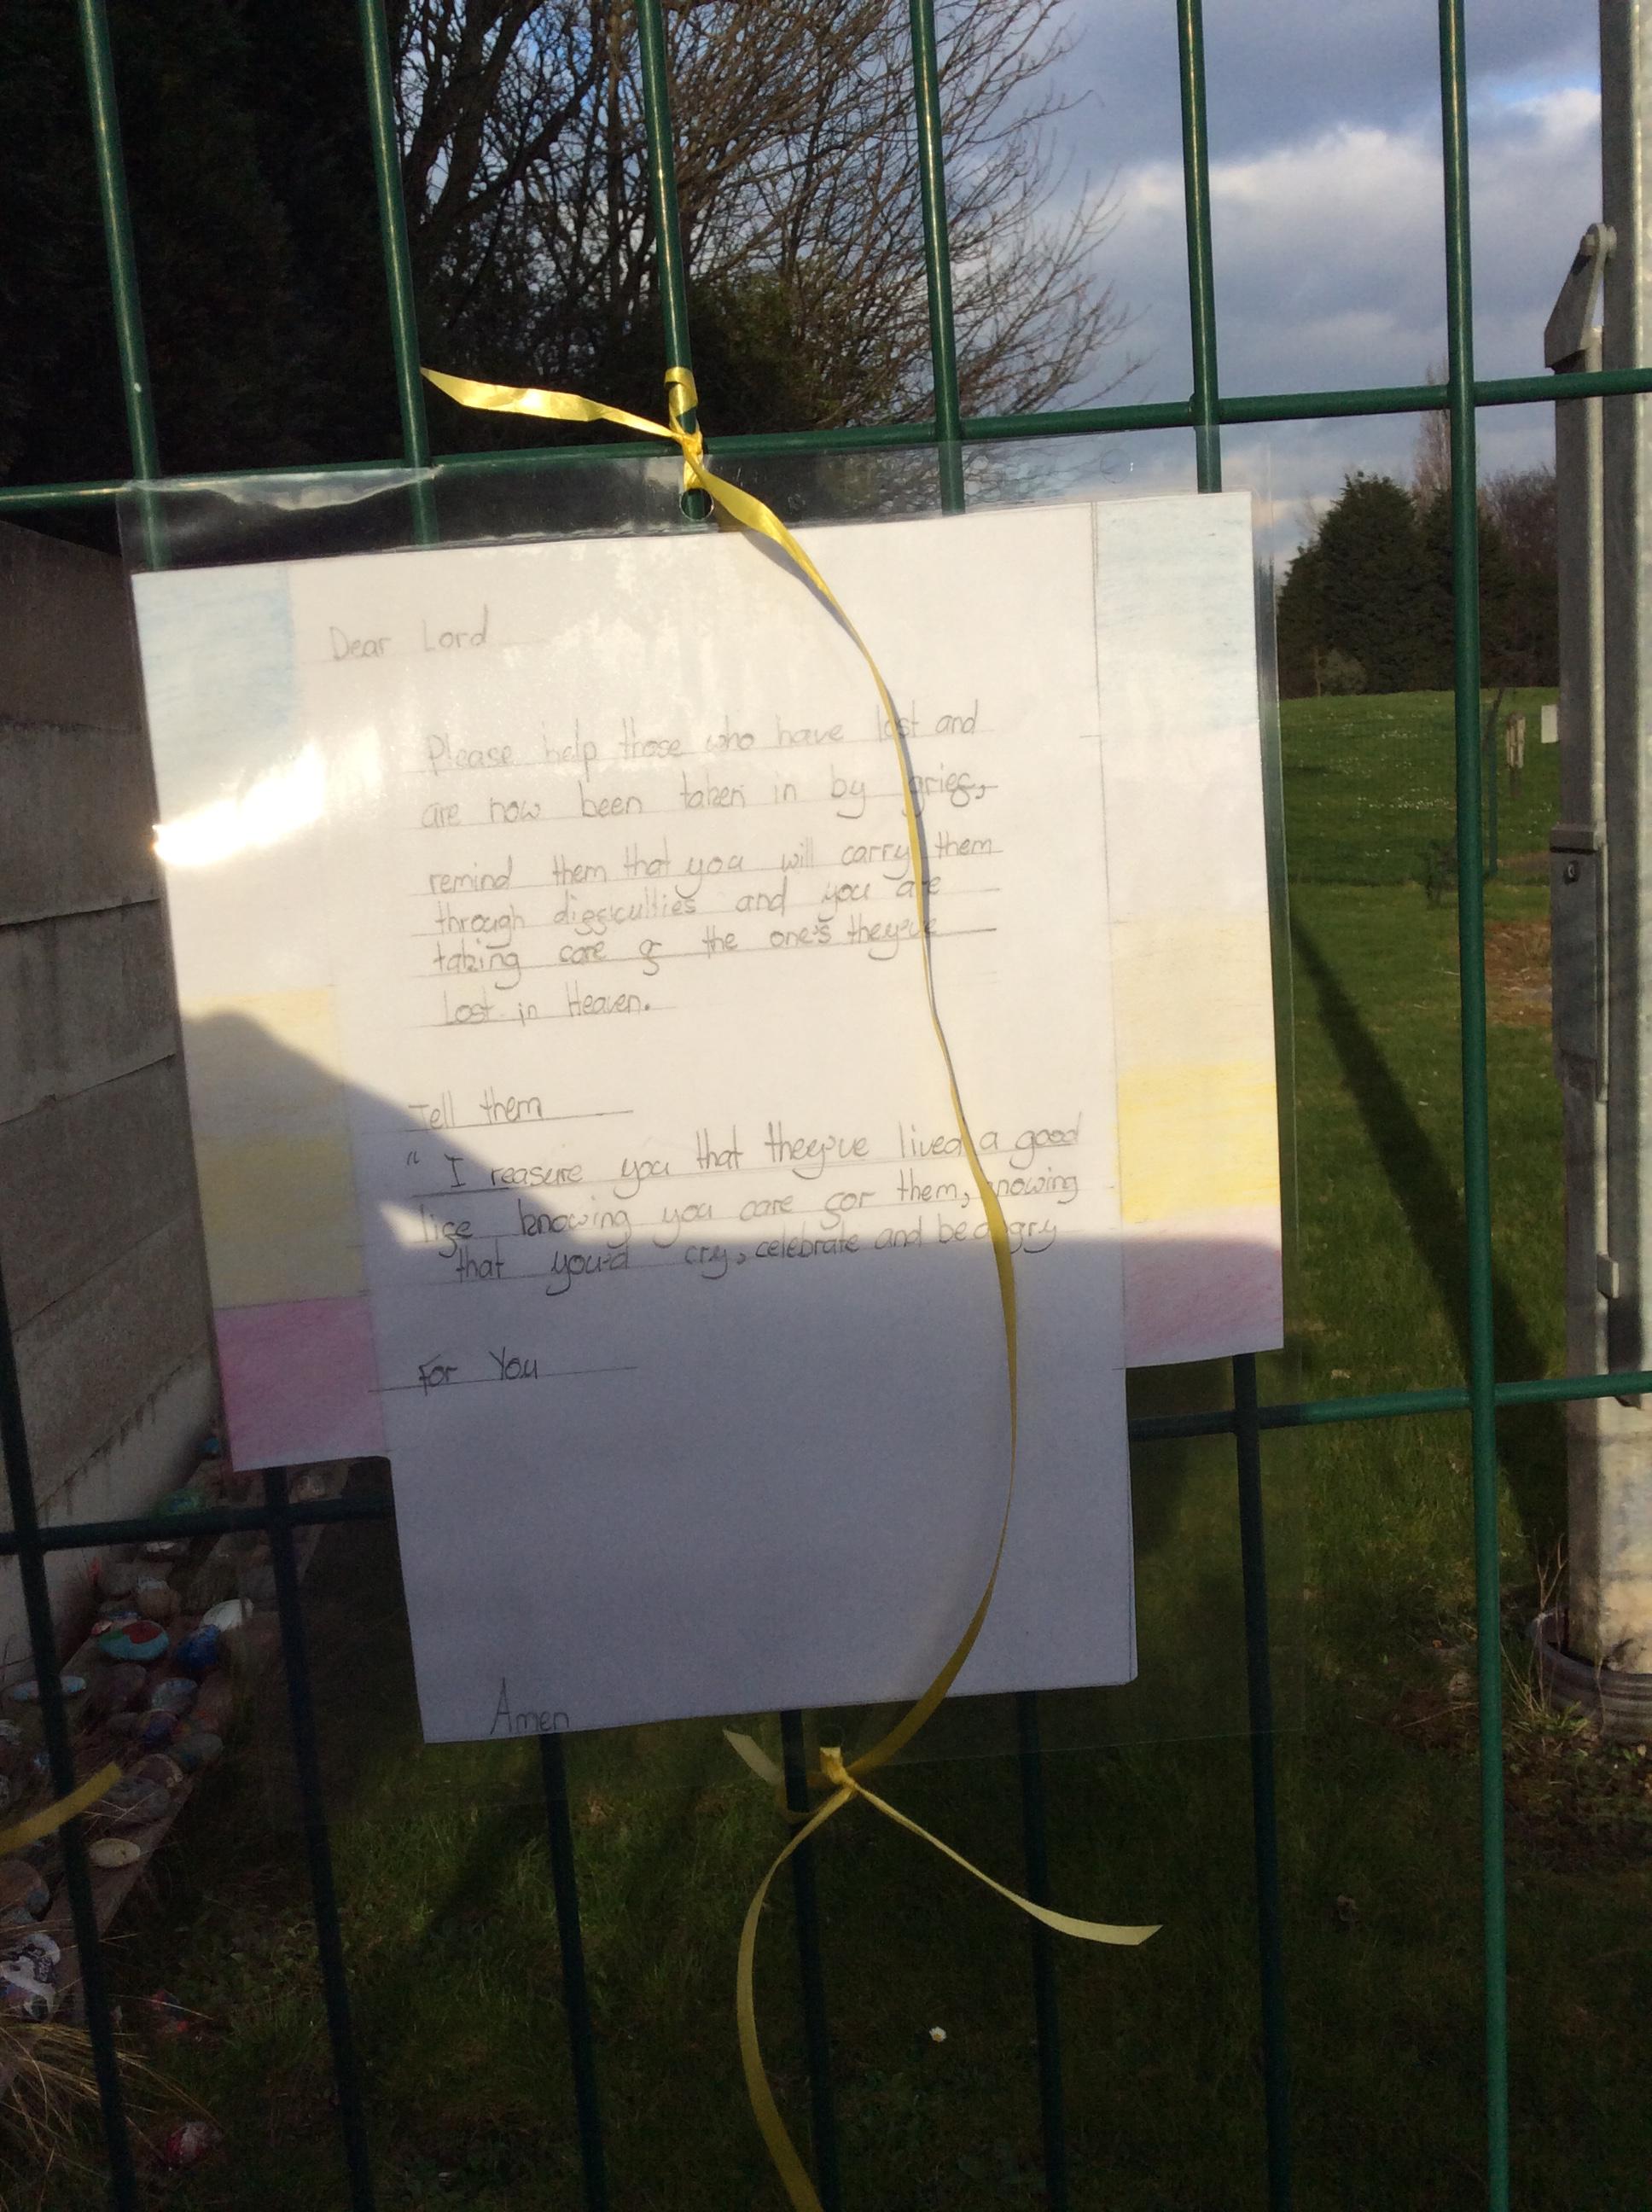 Dear Lord
Please help those who have lost and
are now been taken in by grief,
remind them that you will carry them
through difficulties and you are
taking care of the one's they've
Lost in Heaven.
Tell them
" I reasure you that they've lived a good
life knowing you care for them, knowing
that you'd cry, celebrate and be angry
For You
Amen